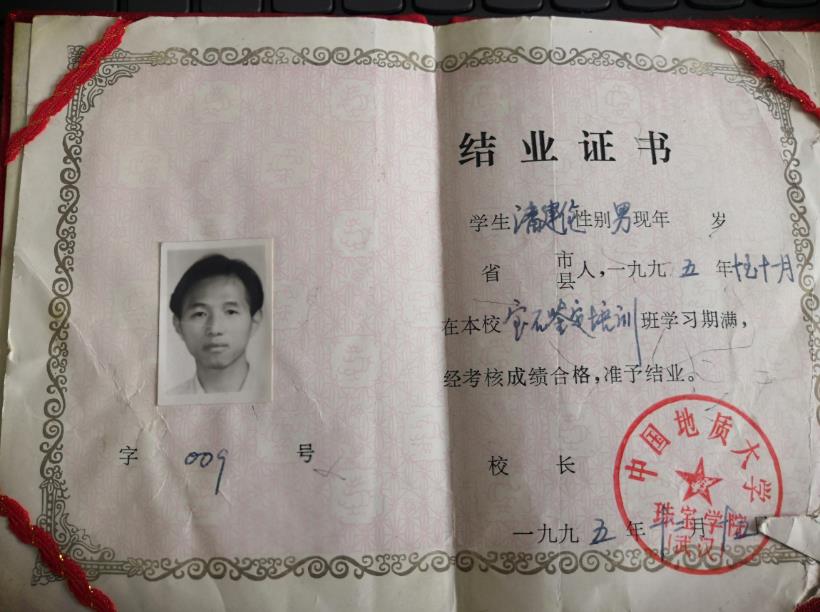 字 009 号
结业证书
学生 潘建伦 性别 男 现年 岁
省 市县人,一九九五年 十一月
在本校 宝石鉴定培训 班学习期满,
经考核成绩合格,准予结业。
校 长
一九九五年 十二月十五日
中国地质大学
珠宝学院
(武汉)